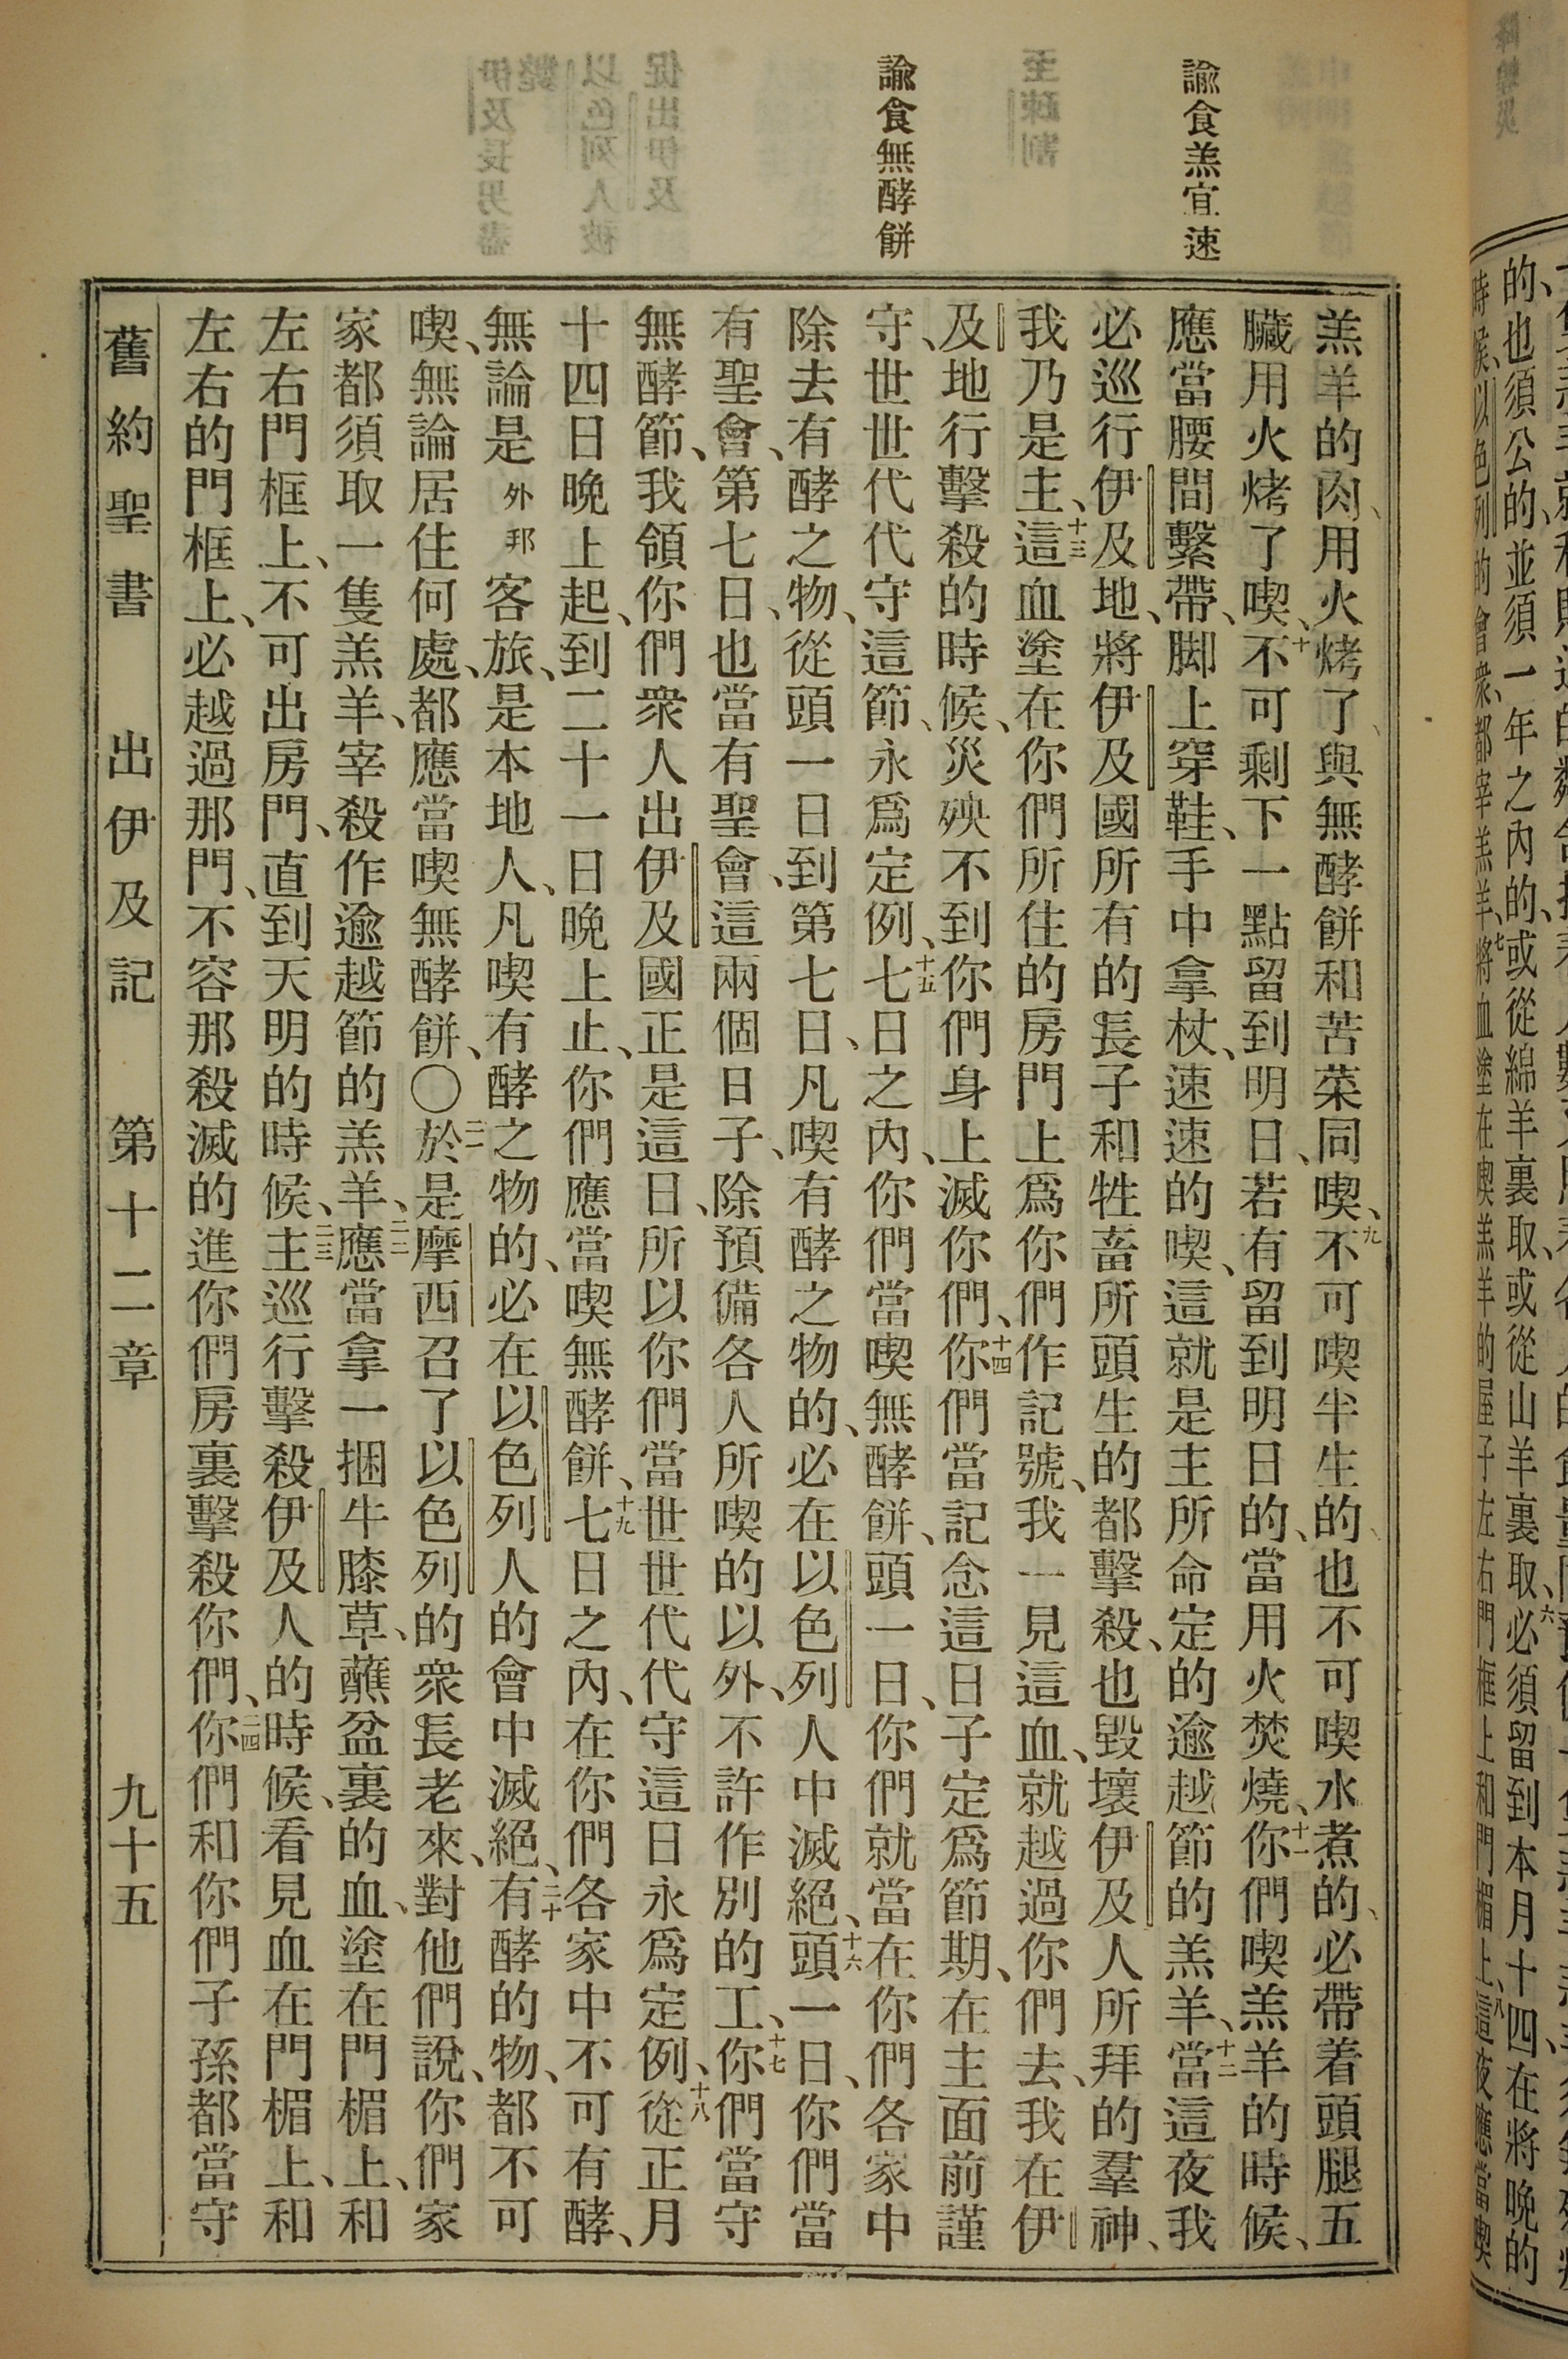 諭食羔宜速
諭食無酵餅
羔羊的肉、用火烤了、與無酵餅和苦菜同喫、九不可喫半生的、也不可喫水煮的、必帶着頭腿五
臟用火烤了喫、十不可剩下一點留到明日、若有留到明日的、當用火焚燒、十一你們喫羔羊的時候、
應當腰間繫帶、脚上穿鞋、手中拿杖、速速的喫、這就是主所命定的逾越節的羔羊、十二當這夜我
必巡行伊及地、將伊及國所有的長子和牲畜所頭生的都擊殺、也毀壞伊及人所拜的羣神、
我乃是主、十三這血塗在你們所住的房門上爲你們作記號、我一見這血、就越過你們去、我在伊
及地行擊殺的時候、災殃不到你們身上滅你們、十四你們當記念這日子定爲節期、在主面前謹
守、世世代代守這節、永爲定例、十五七日之內、你們當喫無酵餅、頭一日、你們就當在你們各家中
除去有酵之物、從頭一日到第七日、凡喫有酵之物的、必在以色列人中滅絕、十六頭一日、你們當
有聖會、第七日、也當有聖會、這兩個日子、除預備各人所喫的以外、不許作別的工、十七你們當守
無酵節、我領你們衆人出伊及國正是這日、所以你們當世世代代守這日永爲定例、十八從正月
十四日晚上起、到二十一日晚上止、你們應當喫無酵餅、十九七日之內、在你們各家中不可有酵、
無論是外邦客旅、是本地人、凡喫有酵之物的、必在以色列人的會中滅絕、二十有酵的物、都不可
喫、無論居住何處、都應當喫無酵餅、〇二一於是摩西召了以色列的衆長老來、對他們說、你們家
家都須取一隻羔羊、宰殺作逾越節的羔羊、二二應當拿一捆牛膝草、蘸盆裏的血、塗在門楣上、和
左右門框上、不可出房門、直到天明的時候、二三主巡行擊殺伊及人的時候、看見血在門楣上、和
左右的門框上、必越過那門、不容那殺滅的進你們房裏擊殺你們、二四你們和你們子孫都當守
舊約聖書 出伊及記 第十二章 九十五
的、也須公的、並須一年之內的、或從綿羊裏取、或從山羊裏取、必須留到本月十四、在將晚的
時候、以色列的會衆、都宰羔羊、七將血塗在喫羔羊的屋子左右門框上和門楣上、八這夜應當喫